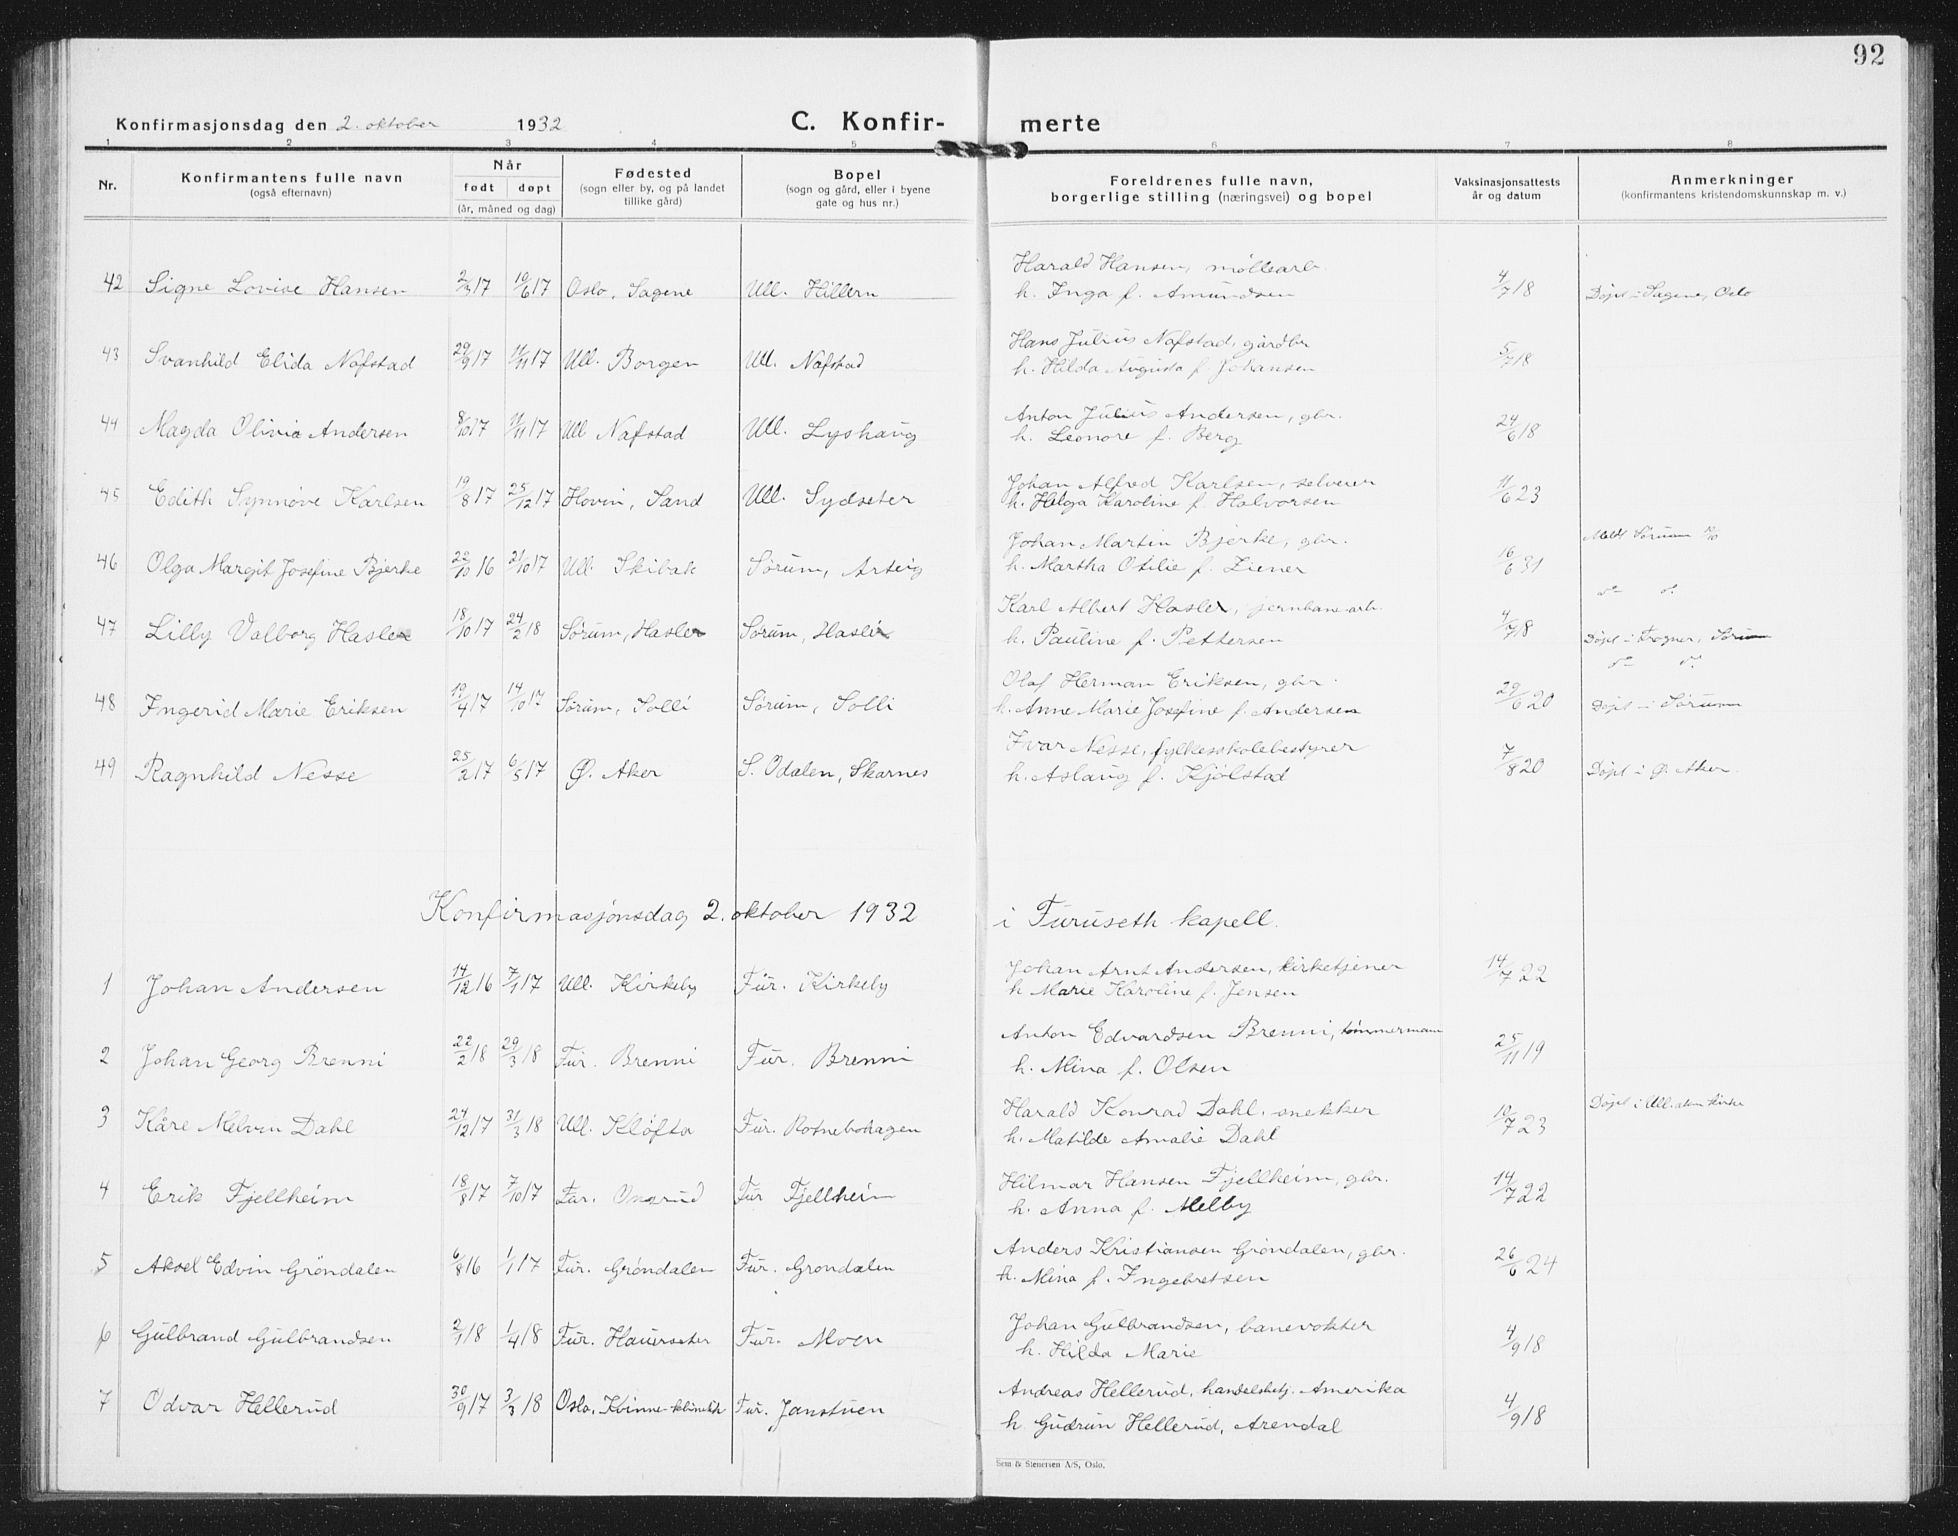 92
Konfirmasjonsdag den 2. oktober 1932 C. Konfirmerte
1 2 3 4 5 6 7 8
Nr. Konfirmantens fulle navn (også efternavn) Når født døpt (år, måned og dag) Fødested (sogn eller by, og på landet tillike gård) Bopel (sogn og gård, eller i byene gate og hus nr.) Foreldrenes fulle navn, borgerlige stilling (næringsvei) og bopel Vaksinasjonsattests år og datum Anmerkninger (konfirmantens kristendomskunnskap m. v.)
Harald Hansen, møllearb.
42 Signe Lovise Hansen 2/3 17 10/6 17 Oslo, Sagene Ull. Hillern h. Inga f. Amundsen 4/7 18 Døpt i Sagene, Oslo
Hans Julius Nafstad, gårdbr.
43 Svanhild Elida Nafstad 29/9 17 11/11 17 Ull. Borgen Ull. Nafstad h. Hilda Augusta f. Johansen 5/7 18
Anton Julius Andersen, gbr.
44 Magda Olivia Andersen 8/10 17 11/11 17 Ull Nafstad Ull. Lyshaug h. Leonore f. Berg 24/6 18
Johan Alfred Karlsen, selveier
45 Edith Synnøve Karlsen 19/8 17 25/12 17 Hovin, Sand Ull. Sydseter h. Helga Karoline f. Halvorsen 11/6 23
Johan Martin Bjerke, gbr. Meldt Sørum
46 Olga Margit Josefine Bjerke 22/10 16 21/10 17 Ull. Skibak Sørum, Arteig h. Martha Otilie f. Ziener 16/6 31
Karl Albert Hasler, jernbanearb. do do
47 Lilly Valborg Hasler 18/10 17 24/2 18 Sørum, Hasler Sørum, Hasler h. Pauline f. Pettersen 4/7 18 Døpt i Frogner, Sørum
Olaf Herman Eriksen, gbr. do do
48 Ingerid Marie Eriksen 19/4 17 14/10 17 Sørum, Solli Sørum, Solli h. Anne Marie Josefine f. Andersen 29/6 20 Døpt i Sørum
Ivar Nesse, fylkesskolebestyrer
49 Ragnhild Nesse 25/2 17 6/5 17 Ø. Aker S. Odalen, Skarnes h. Aslaug f. Kjølstad 7/8 20 Døpt i Ø. Aker.
Konfirmasjonsdag 2. oktober 1932 i Furuseth kapell.
Johan Arnt Andersen, kirketjener
1 Johan Andersen 14/12 16 7/1 17 Ull. Kirkeby Fur. Kirkeby h. Marie Karoline f. Jensen 14/7 22
Anton Edvardsen Brenni, tømmermann
2 Johan Georg Brenni 22/2 18 29/3 18 Fur. Brenni Fur. Brenni h. Mina f. Olsen 25/11 19
Harald Konrad Dahl, snekker Døpt i Ull.aker kirke
3 Kåre Melvin Dahl 24/12 17 31/3 18 Ull. Kløfta Fur. Rotnebohagen h. Matilde Amalie Dahl 10/7 23
Hilmar Hansen Fjellheim, gbr.
4 Erik Fjellheim 18/8 17 7/10 17 Fur. Fur Fjellheim h. Anna f. Melby 14/7 22
Anders Kristiansen Grøndalen, gbr.
5 Aksel Edvin Grøndalen 6/8 16 1/1 17 Fur. Grøndalen Fur. Grøndalen h. Mina f. Ingebretsen 26/6 24
Johan Gulbrandsen, banevokter
6 Gulbrand Gulbrandsen 2/1 18 1/4 18 Fur. Hauerseter Fur. Moen h. Hilda Marie 4/9 18
Andreas Hellerud, handelsbetj. Amerika
7 Odvar Hellerud 30/9 17 3/3 18 Oslo, Kvinne-klinikk Fur. Janstuen h. Gudrun Hellerud, Arendal 4/9 18
Sem & Stenersen A/S, Oslo.